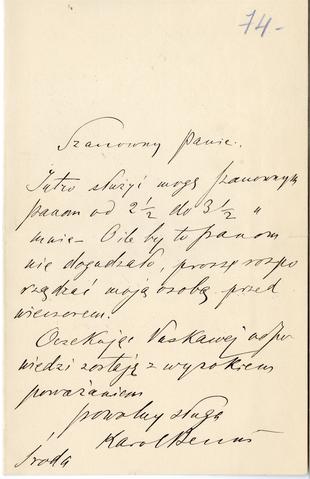 74-
Szanowny Panie.
Jutro służyć mogę Szanownym
panom od 2 1/2 do 3 1/2 u
mnie – O ile by to panom
nie dogadzało, proszę rozpo
rządzać moją osobą przed
wieczorem.
Oczekując łaskawej odpo
wiedzi zostaję z wysokiem
poważaniem
powolny sługa
Karol Benni
Środa